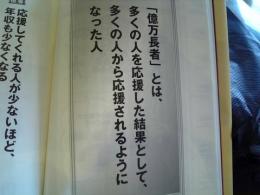 「億万長者」とは、
多くの人を応援した結果として、
多くの人から応援されるように
なった人
応援してくれる人が少ないほど、
年収も少なくなる